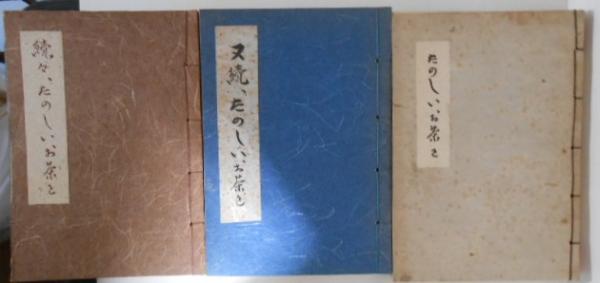 続々、たのしい、お茶を
又続、たのしい、お茶を
たのしい、お茶を